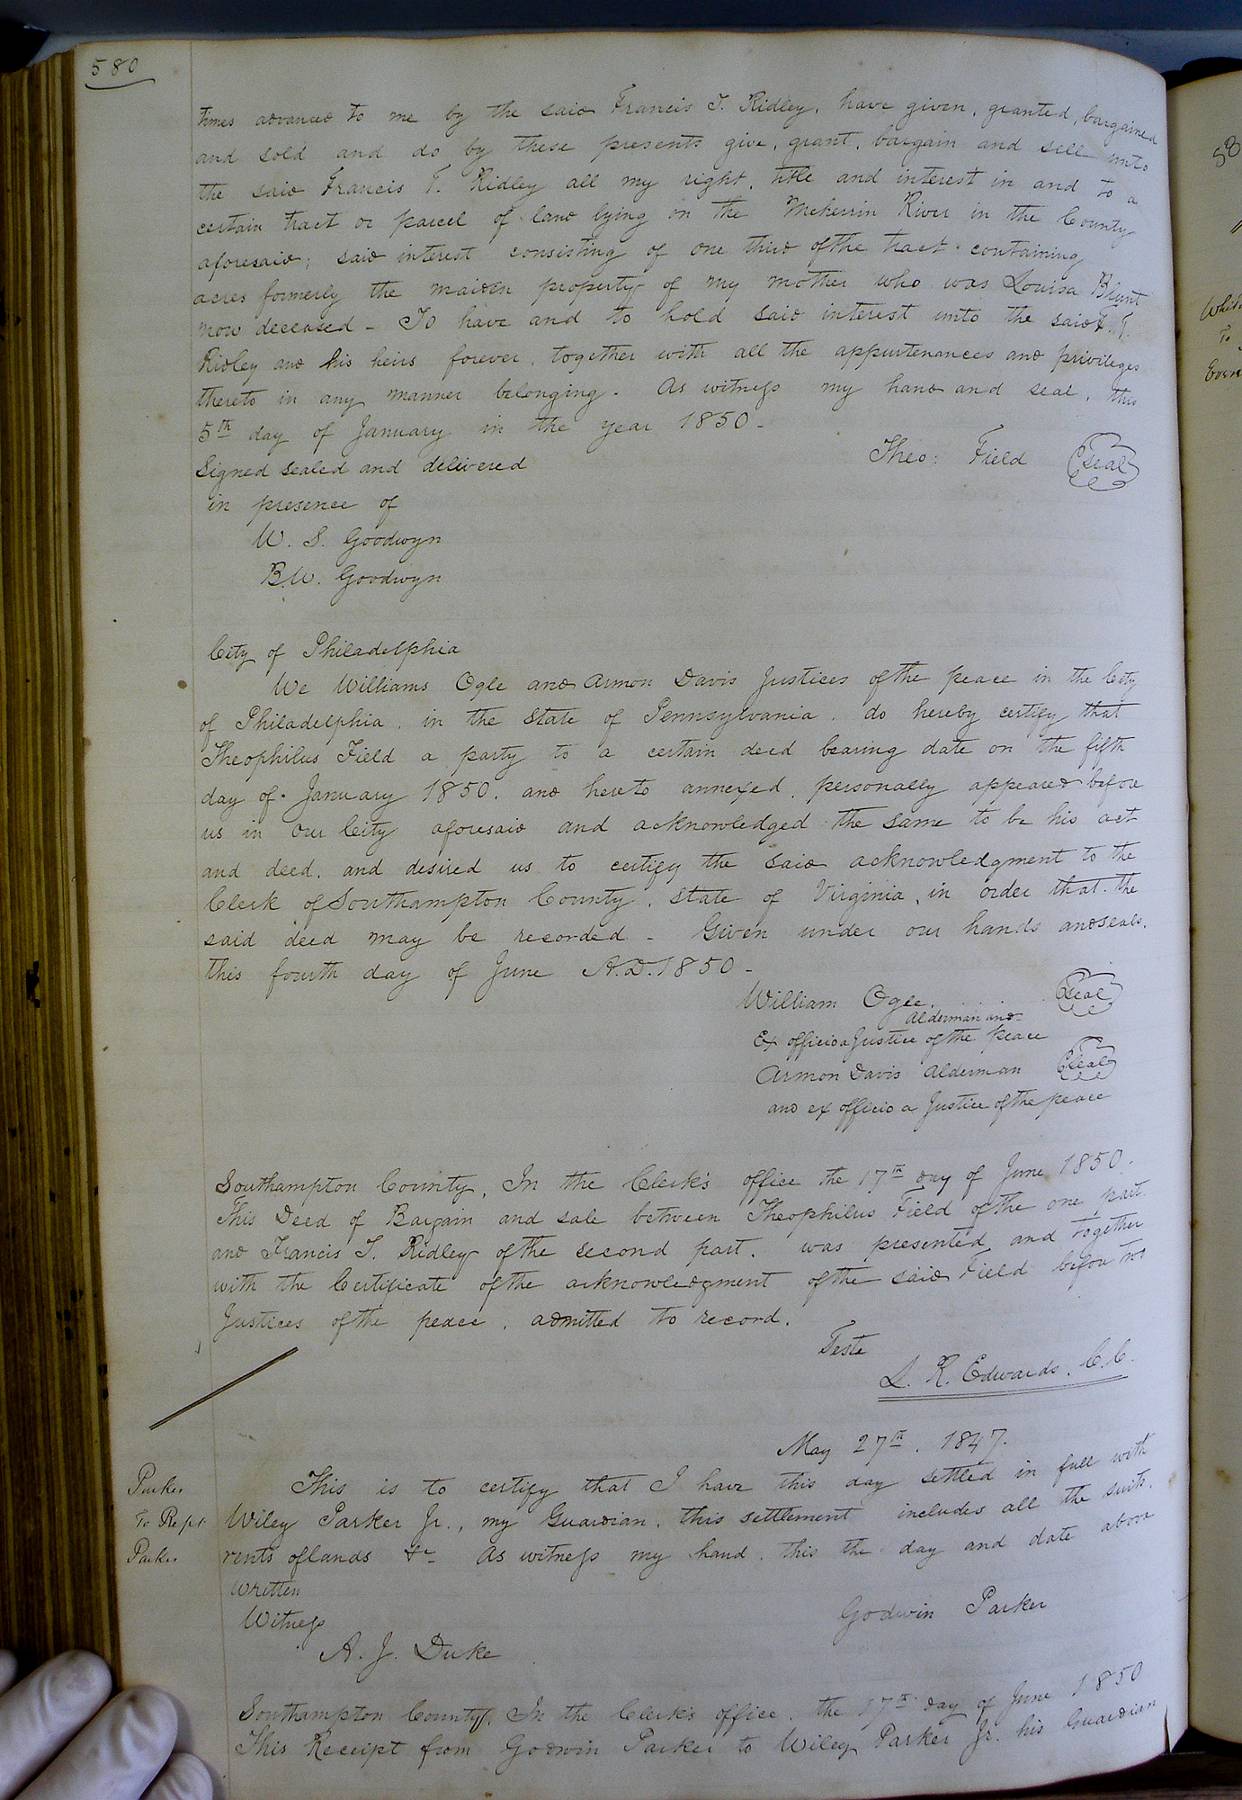 580
times advanced to me by the said Francis T. Ridley, have given, granted, bargained
and sold and do by these presents give, grant, bargain and sell unto
the said Francis T. Ridley all my right, title and interest in and to a
certain tract or parcel of land lying on the Meherrin River in the County
aforesaid; said interest consisting of one third of the tract containing
acres formerly the maiden property of my mother who was Louisa Blunt
now deceased - To have and to hold said interest unto the said F. T.
Ridley and his heirs forever, together with all the appurtenances and privileges
thereto in any manner belonging. As witness my hand and seal, this
5th day of January in the year 1850 -
Signed sealed and delivered Theo: Field Seal
in presence of
W. S. Goodwyn
B. W. Goodwyn
City of Philadelphia
We Williams Ogle and Armon Davis Justices of the peace in the City
of Philadelphia, in the State of Pennsylvania, do hereby certify that
Theophilus Field a party to a certain deed bearing date on the fifth
day of January 1850, and hereto annexed, personally appeared before
us in our City aforesaid and acknowledged the same to be his act
and deed, and desired us to certify the said acknowledgment to the
Clerk of Southampton County, State of Virginia, in order that the
said deed may be recorded - Given under our hands and seals,
this fourth day of June A.D. 1850 -
William Ogle, Seal
Alderman and
Ex officio a Justice of the peace
Armon Davis Alderman Seal
and ex officio a Justice of the peace
Southampton County, In the Clerk's office the 17th day of June 1850.
This Deed of Bargain and sale between Theophilus Field of the one part
and Francis T. Ridley of the second part, was presented and together
with the Certificate of the acknowledgment of the said Field before two
Justices of the peace, admitted to record.
Teste
L. R. Edwards, C. C.
May 27th, 1847.
Parker
To Rept
Parker
This is to certify that I have this day settled in full with
Wiley Parker Jr., my Guardian, this settlement includes all the suits,
rents of lands &c As witness my hand, this the day and date above
written
Witness Godwin Parker
A. J. Duke
Southampton County, In the Clerk's office, the 17th day of June 1850
This Receipt from Godwin Parker to Wiley Parker Jr. his Guardian
58
To